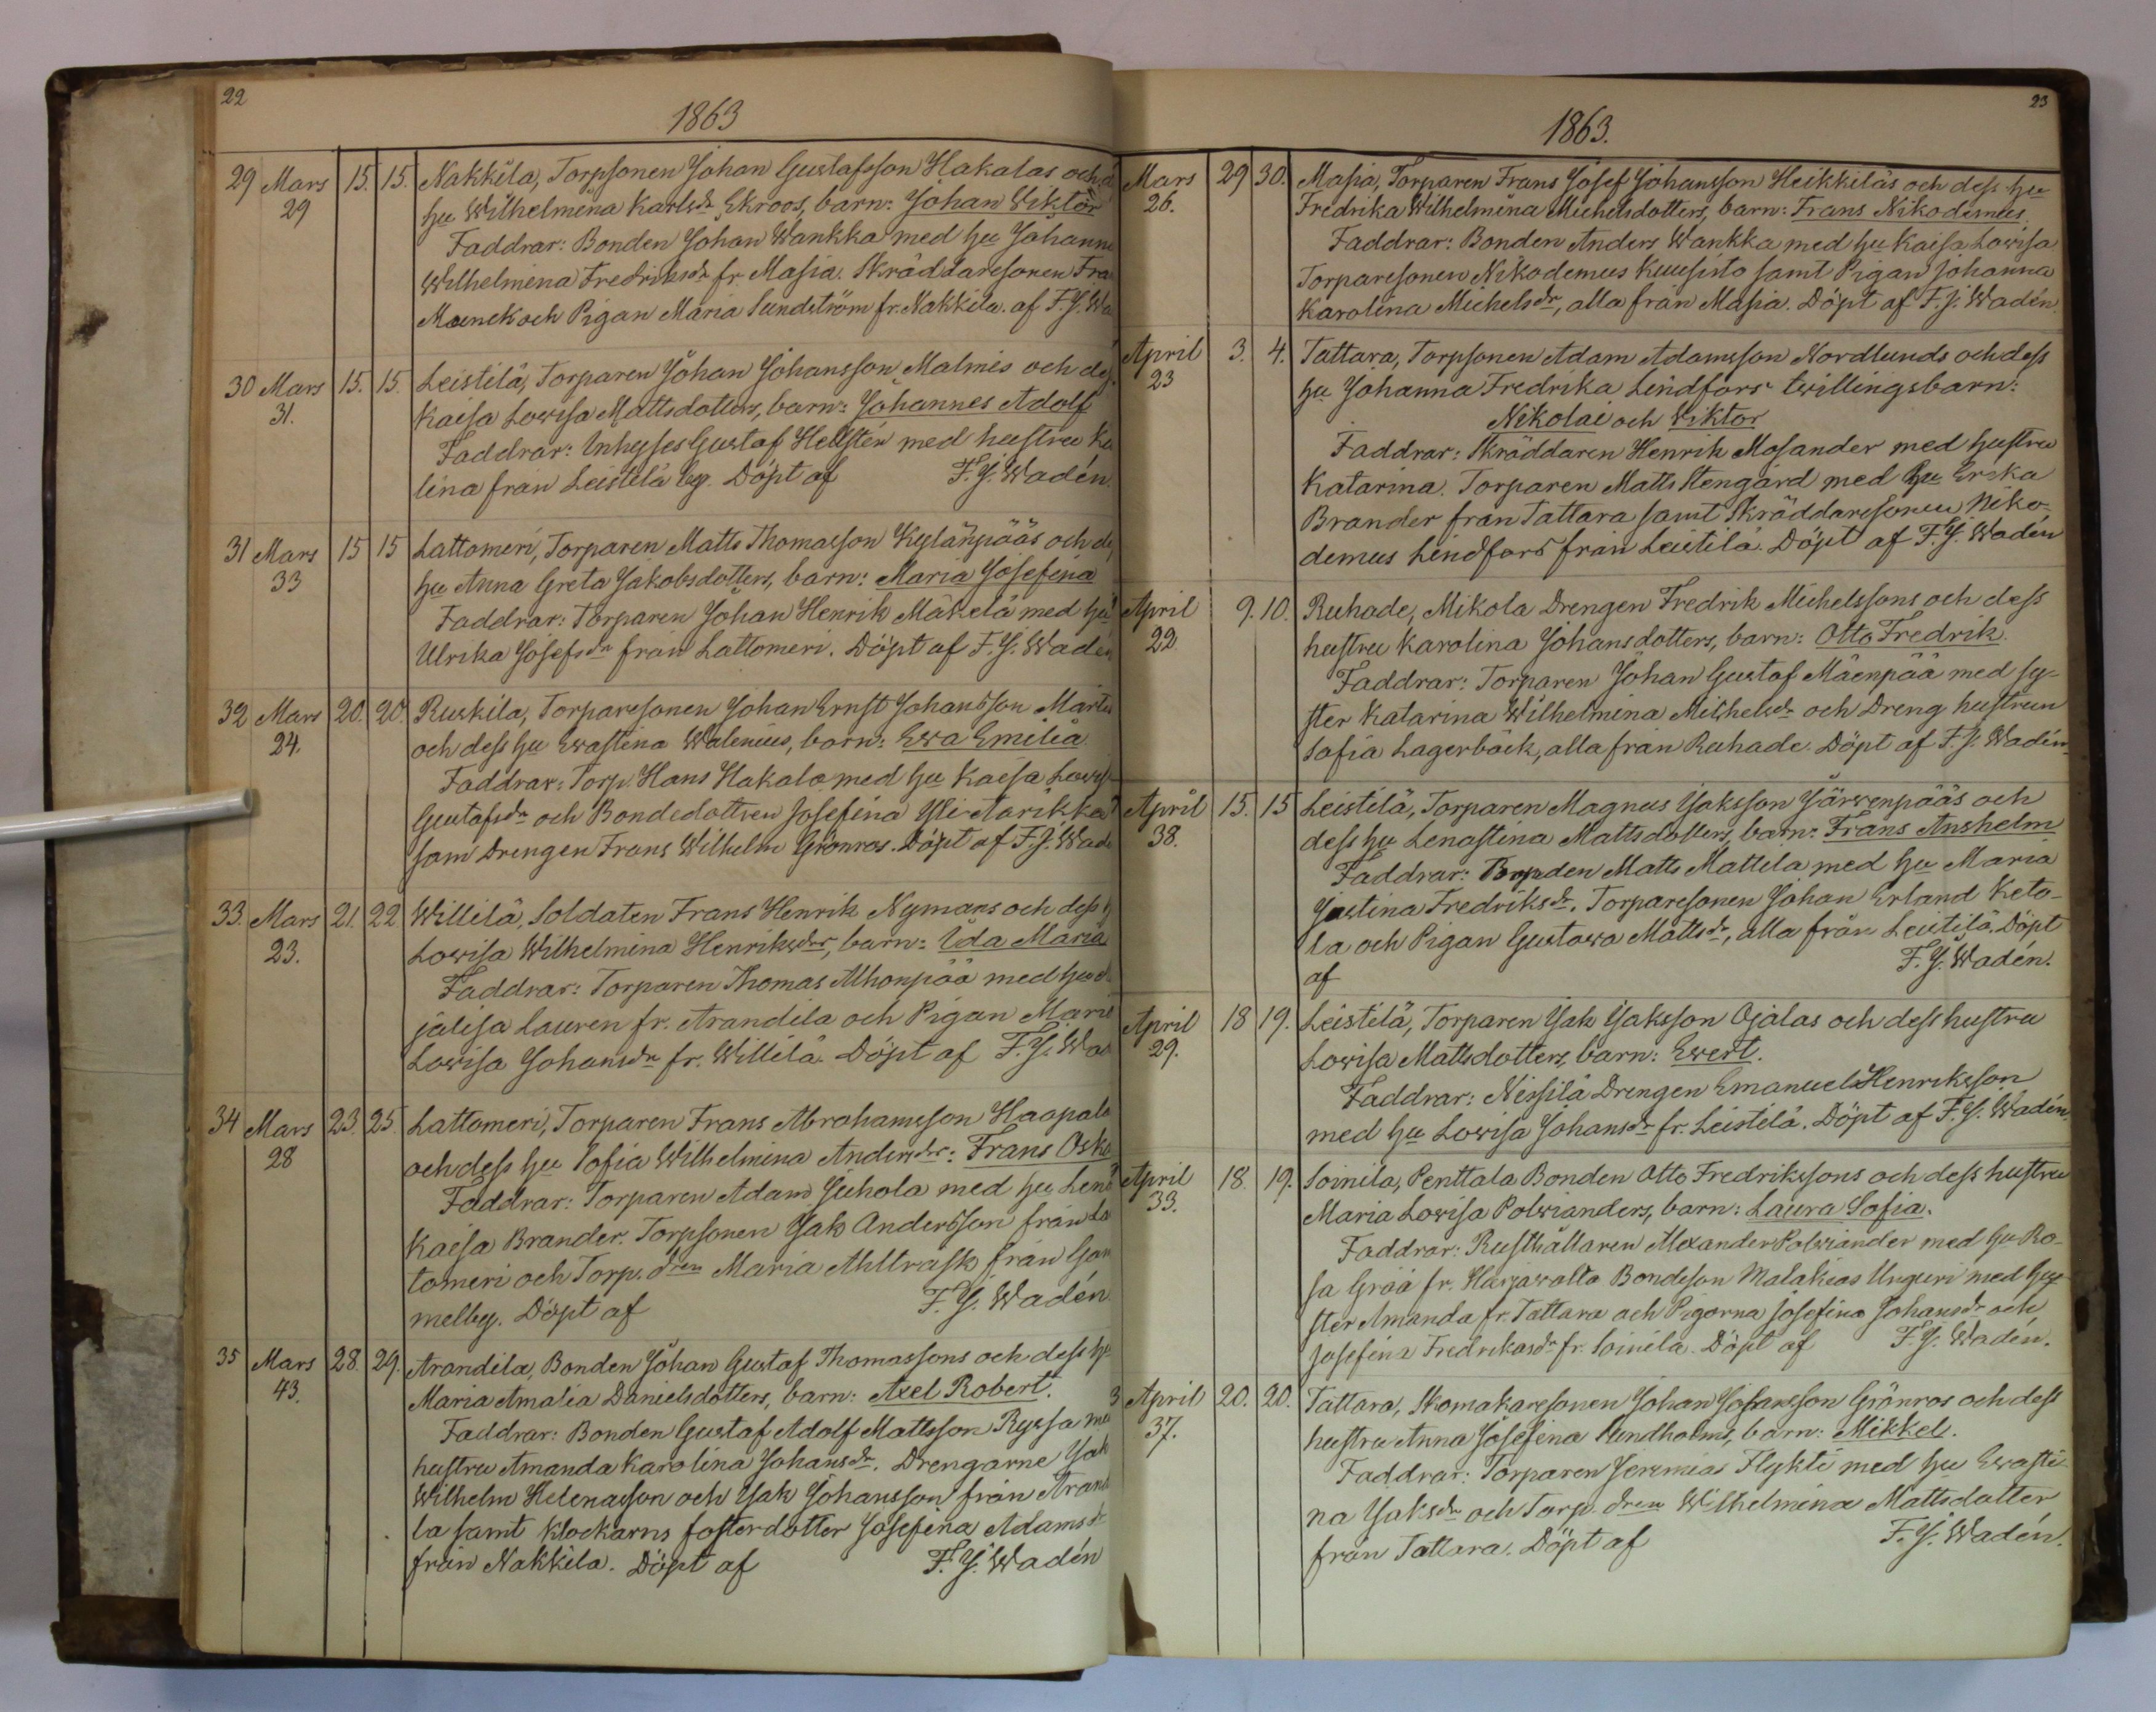 22
1863
29 Mars 15. 15. Nakkila, Torpsonen Johan Gustafsson Hakalas och
29 hu Wilhelmina Karlsdr Ekroos, barn: Johan Wiktor
Faddrar: Bonden Johan Wankka med hu Johanna
Wilhelmina Fredriksdr fr. Masia. Skräddaresonen Fra
Moenck och Pigan Maria Sundström fr. Nakkila. af F. J. Wa
30 Mars 15. 15. Leistilä, Torparen Johan Johansson Malmis och de
31. Kaisa Lowisa Mattsdotters, barn: Johannes Adolf
Faddrar: Inhyses Gustaf Hellstén med hustru Ka
lina från Leistilä by. Döpt af F. J. Wadén.
31 Mars 15 15 Lattomeri, Torparen Matts Thomasson Kylänpääs och de
33 hu Anna Greta Jakobsdotters, barn: Maria Josefina
Faddrar: Torparen Johan Henrik Mäkelä med hu
Ulrika Josefsdr från Lattomeri. Döpt af F. J. Wadén
32 Mars 20. 20. Ruskila, Torparesonen Johan Ernst Johansson Martu
24. och dess hu Ewastina Walenius, barn: Ewa Emilia
Faddrar: Torp. Hans Hakala med hu Kaisa Lowis
Gustafsdr och Bondedottren Josefina Yli-Aarikka
sam Drengen Frans Wilhelm Grönros. Döpt af F. J. Wade
33. Mars 21. 22. Willilä, Soldaten Frans Henrik Nymans och dess h
23. Lowisa Wilhelmina Henriksdrs, barn: Ida Maria
Faddrar: Torparen Thomas Alhonpää med hu
jälisa Lauren fr. Arandila och Pigan Maria
Lowisa Johansdr fr. Willilä. Döpt af F. J. Wad
34 Mars 23. 25. Lattomeri, Torparen Frans Abrahamsson Haapala
28 och dess hu Sofia Wilhelmina Andersdrs: Frans Oska
Faddrar: Torparen Adam Juhola med hu Lena
Kaisa Brander. Torpsonen Isak Andersson från La
tomeri och Torp. dren Maria Ahlträsk från Gam
melby. Döpt af F. J. Wadén
35 Mars 28. 29. Arandila, Bonden Johan Gustaf Thomassons och dess hu
43. Maria Amalia Danielsdotters, barn: Axel Robert.
Faddrar: Bonden Gustaf Adolf Mattsson Ryssa med
hustru Amanda Karolina Johansdr. Drengarne Isak
Wilhelm Helenasson och Isak Johansson från Arand
la samt Klockarns fosterdotter Josefina Adamsdr
från Nakkila. Döpt af F. J. Wadén
23
1863.
Mars 29 30. Masia, Torparen Frans Josef Johansson Heikkiläs och dess hu
26. Fredrika Wilhelmina Michelsdotters, barn: Frans Nikodemus.
Faddrar: Bonden Anders Wankka med hu Kaisa Lowisa
Torparesonen Nikodemus Kuusisto samt Pigan Johanna
Karolina Michelsdr, alla från Masia. Döpt af F. J. Wadén.
April 3. 4. Tattara, Torpsonen Adam Adamsson Nordlunds och dess
23 hu Johanna Fredrika Lindfors twillingsbarn:
Nikolai och Wiktor
Faddrar: Skräddaren Henrik Mosander med hustru
Katarina. Torparen Matts Stengård med hu Erika
Brander från Tattara samt Skräddaresonen Niko-
demus Lindfors från Leistilä. Döpt af F. J. Wadén
April 9. 10. Ruhade, Mikola Drengen Fredrik Michelssons och dess
22. hustru Karolina Johansdotters, barn: Otto Fredrik.
Faddrar: Torparen Johan Gustaf Mäenpää med sy-
ster Katarina Wilhelmina Michelsdr och Dreng hustrun
Sofia Lagerbäck, alla från Ruhade. Döpt af F. J. Wadén.
April 15. 15 Leistilä, Torparen Magnus Isaksson Järwenpääs och
38. dess hu Lenastina Mattsdotters, barn: Frans Anshelm
Faddrar: Bonden Matts Mattila med hu Maria
Justina Fredriksdr. Torparesonen Johan Erland Keto-
la och Pigan Gustawa Mattsdr, alla från Leistilä. Döpt
af F. J. Wadén.
April 18 19. Leistilä, Torparen Isak Isaksson Ojalas och dess hustru
29. Lowisa Mattsdotters, barn: Ewert.
Faddrar: Nissilä Drengen Emanuel Henriksson
med hu Lowisa Johansdr fr. Leistilä. Döpt af F. J. Wadén.
April 18. 19. Soinila, Penttala Bonden Otto Fredrikssons och dess hustru
33. Maria Lowisa Polwianders, barn: Laura Sofia.
Faddrar: Rusthållaren Alexander Polwiander med hu Ro-
sa Grää fr. Harjawalta Bondeson Malakias Unguri med sy-
ster Amanda fr. Tattara och Pigorna Josefina Johansdr och
Josefina Fredriksdr fr. Soinila. Döpt af F. J. Wadén.
3 April 20. 20. Tattara, Skomakaresonen Johan Johansson Grönros och dess
37. hustru Anna Josefina Lundholms, barn: Mikkel.
Faddrar: Torparen Jeremias Flykti med hu Ewasti-
na Isaksdr och Torp. dren Wilhelmina Mattsdotter
från Tattara. Döpt af F. J. Wadén.